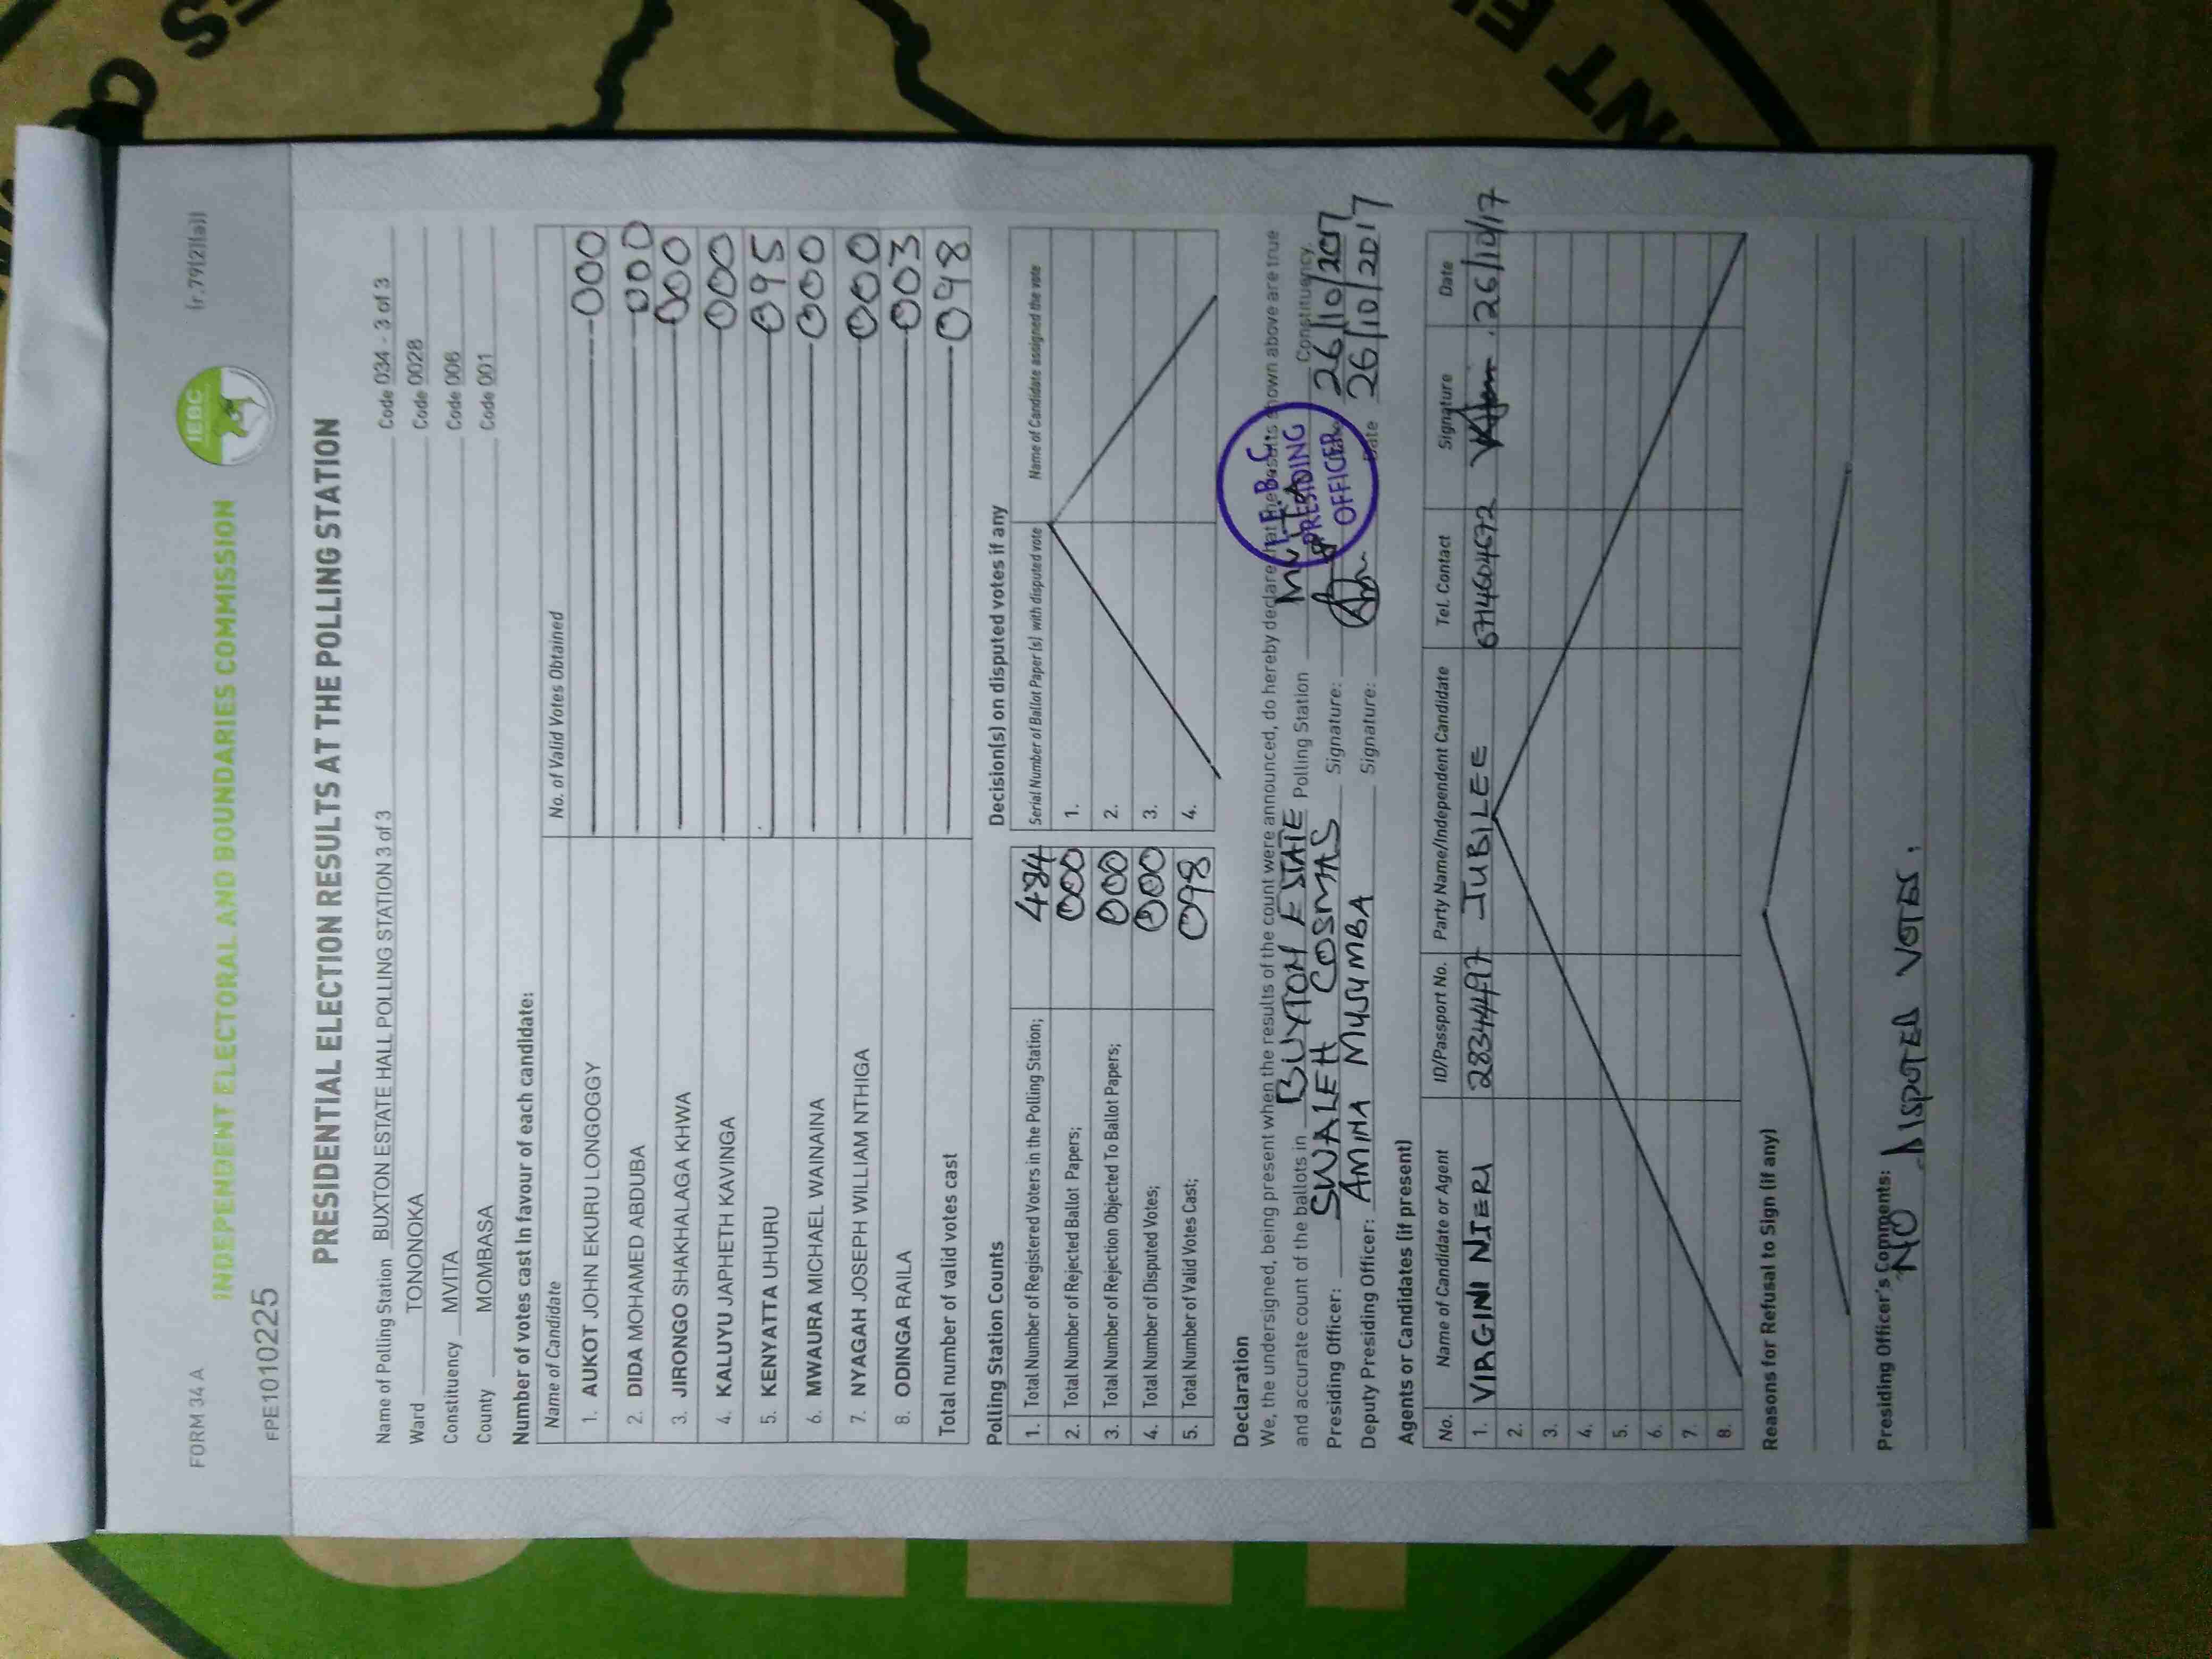 FORM 34 A
(r.79(2)(a))
IEBC
INDEPENDENT ELECTORAL AND BOUNDARIES COMMISSION
FPE1010225
PRESIDENTIAL ELECTION RESULTS AT THE POLLING STATION
Name of Polling Station BUXTON ESTATE HALL POLLING STATION 3 of 3 Code 034 - 3 of 3
Ward TONONOKA Code 0028
Constituency MVITA Code 006
County MOMBASA Code 001
Number of votes cast in favour of each candidate:
Name of Candidate No. of Valid Votes Obtained
1. AUKOT JOHN EKURU LONGOGGY 000
2. DIDA MOHAMED ABDUBA 000
3. JIRONGO SHAKHALAGA KHWA 000
4. KALUYU JAPHETH KAVINGA 000
5. KENYATTA UHURU 095
6. MWAURA MICHAEL WAINAINA 000
7. NYAGAH JOSEPH WILLIAM NTHIGA 000
8. ODINGA RAILA 003
Total number of valid votes cast 098
Polling Station Counts
1. Total Number of Registered Voters in the Polling Station; 484
2. Total Number of Rejected Ballot Papers; 000
3. Total Number of Rejection Objected To Ballot Papers; 000
4. Total Number of Disputed Votes; 000
5. Total Number of Valid Votes Cast; 098
Decision(s) on disputed votes if any
Serial Number of Ballot Paper (s) with disputed vote Name of Candidate assigned the vote
1.
2.
3.
4.
Declaration
We, the undersigned, being present when the results of the count were announced, do hereby declare that the results shown above are true
and accurate count of the ballots in BUXTON ESTATE Polling Station MVITA Constituency.
Presiding Officer: SWALEH COSMAS Signature: Date 26/10/2017
Deputy Presiding Officer: AMINA MUSYMBA Signature: Date 26/10/2017
I.E.B.C
PRESIDING
OFFICER
Agents or Candidates (if present)
No. Name of Candidate or Agent ID/Passport No. Party Name/Independent Candidate Tel. Contact Signature Date
1. VIRGINI NJERI JUBILEE 26/10/17
2.
3.
4.
5.
6.
7.
8.
Reasons for Refusal to Sign (if any)
Presiding Officer's Comments:
NO DISPUTED VOTES.